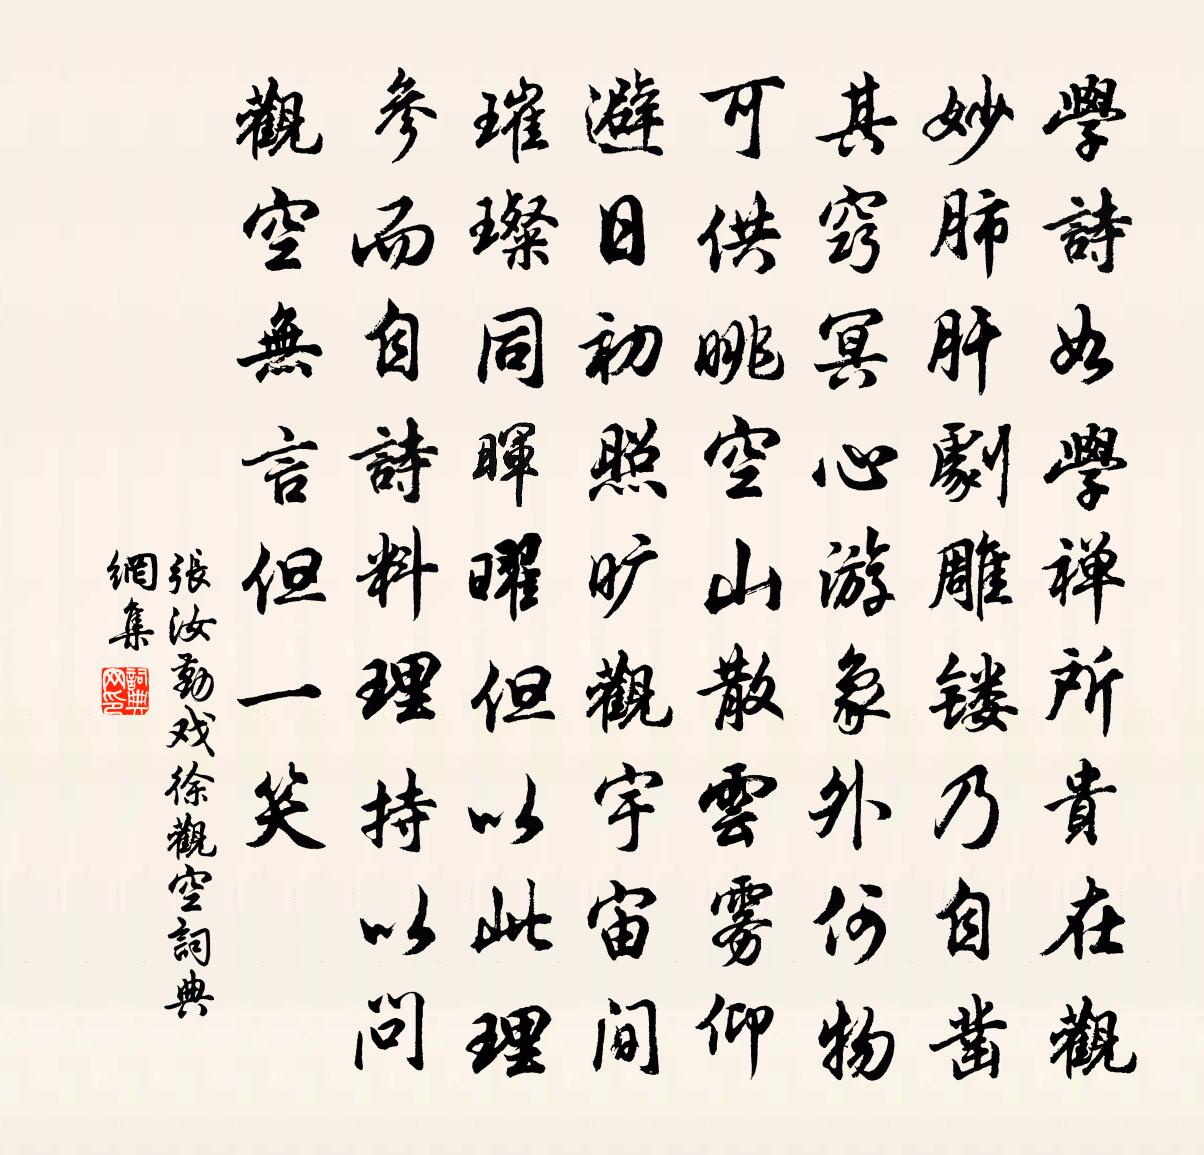 學詩如學禅所貴在觀
妙肺肝劇雕镂乃自凿
其窍冥心游象外何物
可供眺空山散雲雾仰
避日初照旷觀宇宙間
璀璨同暉曜但以此理
參而自詩料理持以問
觀空無言但一笑
張汝勤戏徐觀空詞典
網集
詞典
网印